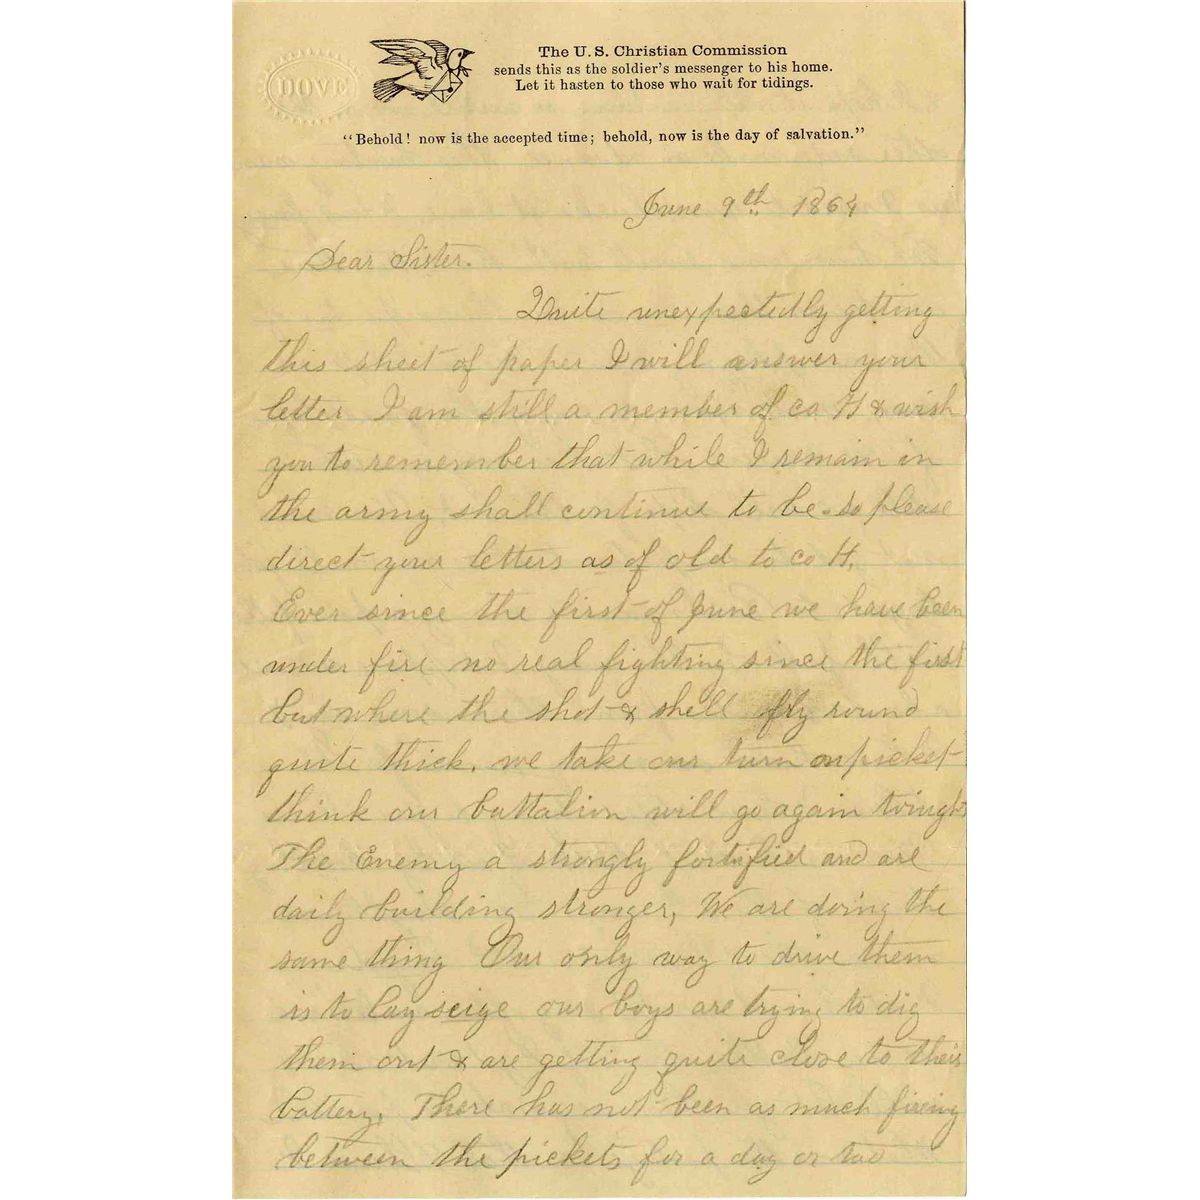 DOVE
The U. S. Christian Commission
sends this as the soldier's messenger to his home.
Let it hasten to those who wait for tidings.
"Behold! now is the accepted time; behold, now is the day of salvation."
June 9th 1864
Dear Sister.
Quite unexpectedly getting
this sheet of paper I will answer your
letter I am still a member of co H & wish
you to remember that while I remain in
the army shall continue to be. so please
direct your letters as of old to co H.
Ever since the first of June we have been
under fire no real fighting since the first
but where the shot & shell fly round
quite thick. we take our turn on picket
think our battalion will go again tonight
The Enemy a strongly fortified and are
daily building stronger, We are doing the
same thing Our only way to drive them
is to lay seige our boys are trying to dig
them out & are getting quite close to their
battery. There has not been as much fireing
between the pickets for a day or two